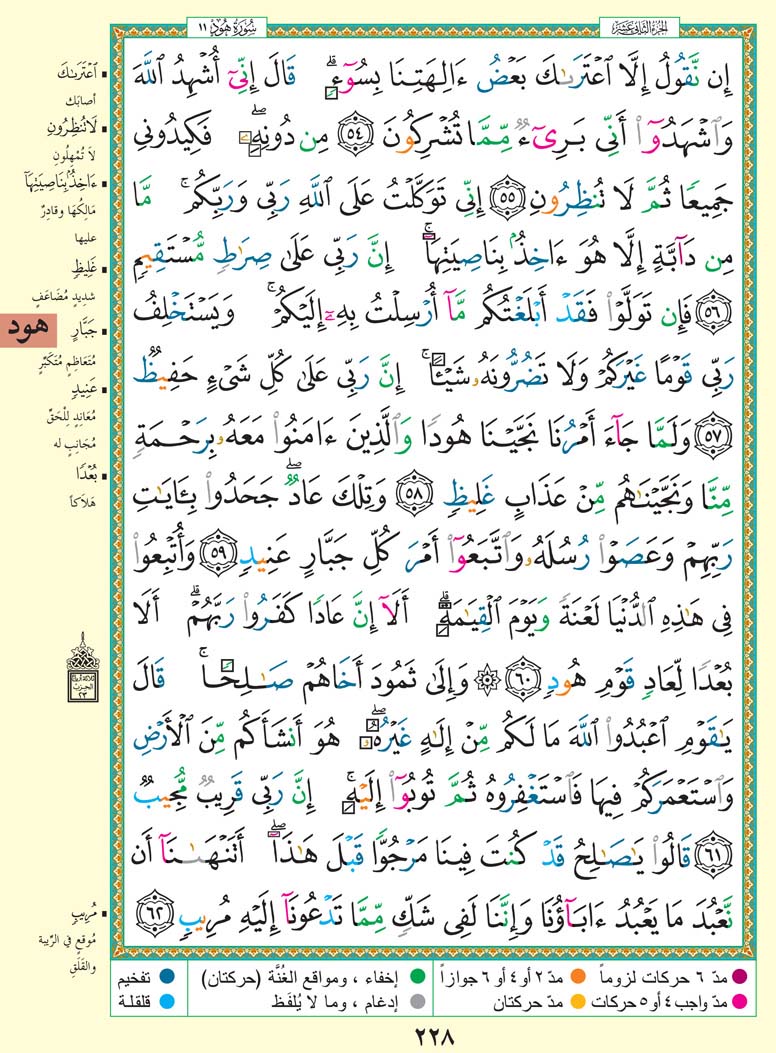 سُورَةُ هُودٍ ١١
الجُزءُ الثَّانِي عَشَرَ
إِن نَّقُولُ إِلَّا ٱعْتَرَىٰكَ بَعْضُ ءَالِهَتِنَا بِسُوٓءٍ ۗ قَالَ إِنِّىٓ أُشْهِدُ ٱللَّهَ
وَٱشْهَدُوٓا۟ أَنِّى بَرِىٓءٌ مِّمَّا تُشْرِكُونَ ﴿٥٤﴾ مِن دُونِهِۦ ۖ فَكِيدُونِى
جَمِيعًا ثُمَّ لَا تُنظِرُونِ ﴿٥٥﴾ إِنِّى تَوَكَّلْتُ عَلَى ٱللَّهِ رَبِّى وَرَبِّكُم ۚ مَّا
مِن دَآبَّةٍ إِلَّا هُوَ ءَاخِذٌۢ بِنَاصِيَتِهَآ ۚ إِنَّ رَبِّى عَلَىٰ صِرَٰطٍ مُّسْتَقِيمٍ
﴿٥٦﴾ فَإِن تَوَلَّوْا۟ فَقَدْ أَبْلَغْتُكُم مَّآ أُرْسِلْتُ بِهِۦٓ إِلَيْكُمْ ۚ وَيَسْتَخْلِفُ
رَبِّى قَوْمًا غَيْرَكُمْ وَلَا تَضُرُّونَهُۥ شَيْـًٔا ۚ إِنَّ رَبِّى عَلَىٰ كُلِّ شَىْءٍ حَفِيظٌ
﴿٥٧﴾ وَلَمَّا جَآءَ أَمْرُنَا نَجَّيْنَا هُودًا وَٱلَّذِينَ ءَامَنُوا۟ مَعَهُۥ بِرَحْمَةٍ
مِّنَّا وَنَجَّيْنَٰهُم مِّنْ عَذَابٍ غَلِيظٍ ﴿٥٨﴾ وَتِلْكَ عَادٌ ۖ جَحَدُوا۟ بِـَٔايَٰتِ
رَبِّهِمْ وَعَصَوْا۟ رُسُلَهُۥ وَٱتَّبَعُوٓا۟ أَمْرَ كُلِّ جَبَّارٍ عَنِيدٍ ﴿٥٩﴾ وَأُتْبِعُوا۟
فِى هَٰذِهِ ٱلدُّنْيَا لَعْنَةً وَيَوْمَ ٱلْقِيَٰمَةِ ۗ أَلَآ إِنَّ عَادًا كَفَرُوا۟ رَبَّهُمْ ۗ أَلَا
بُعْدًا لِّعَادٍ قَوْمِ هُودٍ ﴿٦٠﴾ ۞ وَإِلَىٰ ثَمُودَ أَخَاهُمْ صَٰلِحًا ۚ قَالَ
يَٰقَوْمِ ٱعْبُدُوا۟ ٱللَّهَ مَا لَكُم مِّنْ إِلَٰهٍ غَيْرُهُۥ ۖ هُوَ أَنشَأَكُم مِّنَ ٱلْأَرْضِ
وَٱسْتَعْمَرَكُمْ فِيهَا فَٱسْتَغْفِرُوهُ ثُمَّ تُوبُوٓا۟ إِلَيْهِ ۚ إِنَّ رَبِّى قَرِيبٌ مُّجِيبٌ
﴿٦١﴾ قَالُوا۟ يَٰصَٰلِحُ قَدْ كُنتَ فِينَا مَرْجُوًّا قَبْلَ هَٰذَآ ۖ أَتَنْهَىٰنَآ أَن
نَّعْبُدَ مَا يَعْبُدُ ءَابَآؤُنَا وَإِنَّنَا لَفِى شَكٍّ مِّمَّا تَدْعُونَآ إِلَيْهِ مُرِيبٍ ﴿٦٢﴾
ٱعْتَرَىٰكَ
أصابَك
لَا تُنظِرُونِ
لا تُمْهِلُونِ
ءَاخِذٌۢ بِنَاصِيَتِهَآ
مَالِكُهَا وقَادِرٌ
عليها
غَلِيظٍ
شديدٍ مُضَاعَفٍ
جَبَّارٍ
مُتَعَاظِمٍ مُتَكَبِّرٍ
عَنِيدٍ
مُعَانِدٍ لِلْحَقِّ
مُجَانِبٍ له
بُعْدًا
هَلَاكاً
هود
ثلاثة أرباع
الحزب
٢٣
مُرِيبٍ
مُوقعٍ في الرِّيبة
والقَلَقِ
مدّ ٦ حركات لزوماً
مدّ ٢ أو ٤ أو ٦ جوازاً
إخفاء ، ومواقع الغُنَّة (حركتان)
تفخيم
مدّ واجب ٤ أو ٥ حركات
مدّ حركتان
إدغام ، وما لا يُلفَظ
قلقلة
٢٢٨